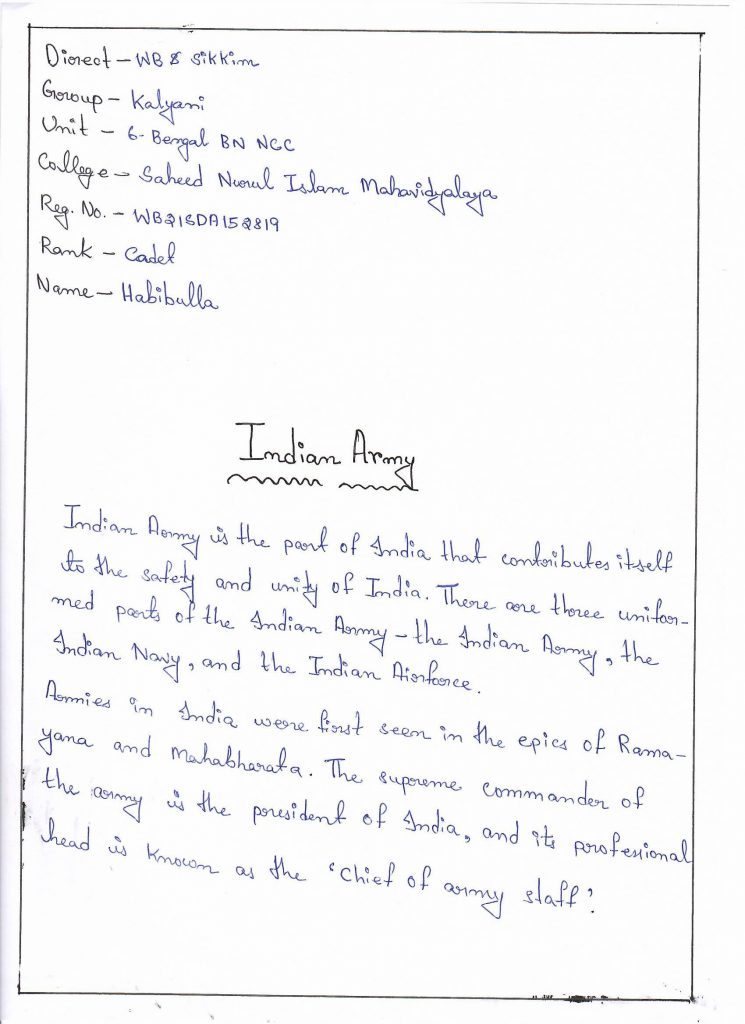 Direct - WB & Sikkim
Group - Kalyani
Unit - 6-Bengal BN NCC
College - Saheed Nurul Islam Mahavidyalaya
Reg. No. - WB21SDA152819
Rank - Cadet
Name - Habibulla
Indian Army
Indian Army is the part of India that contributes itself
to the safety and unity of India. There are three unifor-
med parts of the Indian Army - the Indian Army, the
Indian Navy, and the Indian Airforce.
Armies in India were first seen in the epics of Rama-
yana and Mahabharata. The supreme commander of
the army is the president of India, and its professional
head is known as the 'Chief of army staff'.